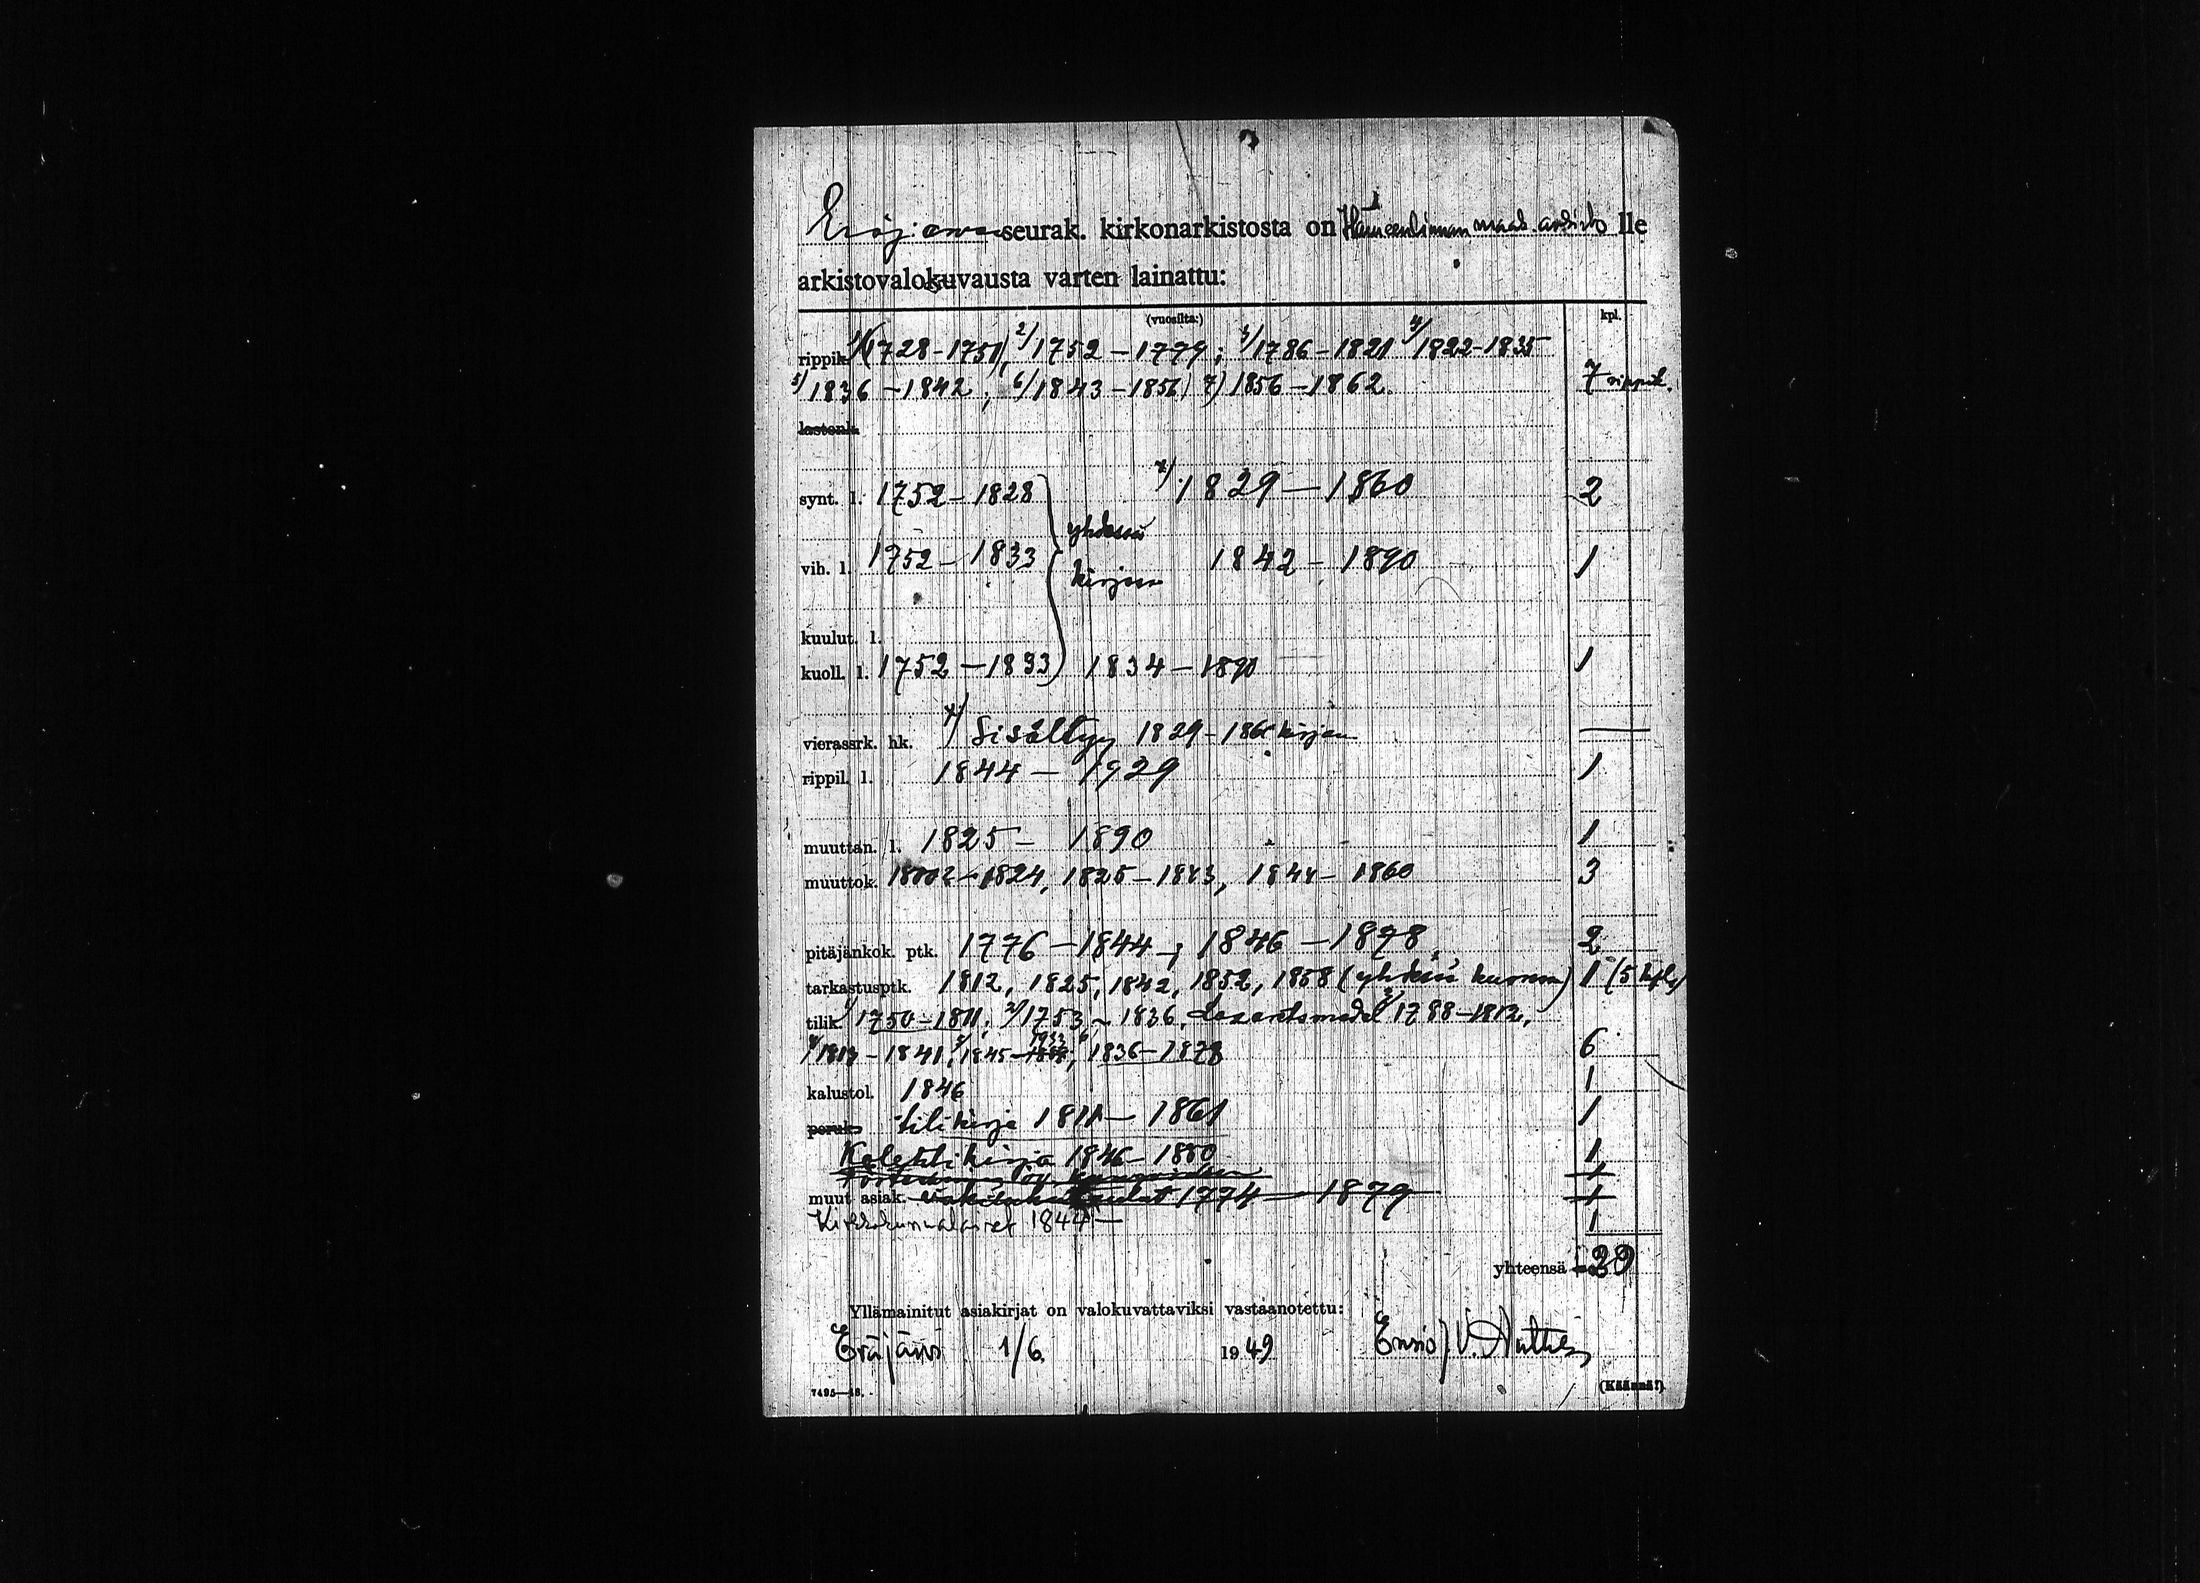 Eräjärven seurak. kirkonarkistosta on Hämeenlinnan maak. arkisto lle
arkistovalokuvausta varten lainattu:
(vuosilta:) kpl.
rippik. 1/(1728-1751), 2/1752-1779; 3/1786-1821 4/1822-1835
5/1836-1842; 6/1843-1856; 7) 1856-1862. 7 rippik.
lastenk.
synt. l. 1752-1828 x/ 1829-1860 2
yhdessä
vih. l. 1752-1833 1842-1890 1
kirjassa
kuulut. l.
kuoll. l. 1752-1833 1834-1890 1
vierassrk. hk. x/ Sisältyy 1829-1860 kirjaan
rippil. l. 1844-1929 1
muuttan. l. 1825-1890 1
muuttok. -1824, 1825-1843, 1844-1860 3
pitäjänkok. ptk. 1776-1844; 1846-1878 2
tarkastusptk. 1812, 1825, 1842, 1852, 1858 (yhdessä kuoressa) 1 (5 kpl)
tilik. 1/1750-1811; 2/1753-1836, 3/1788-1812,
4/1813-1841, 5/1845- 1933, 6/1836-1878 6
kalustol. 1846 1
peruk. tilikirja 1811-1861 1
Kolehtikirja 1846-1880 1
1
muut asiak. 1774-1879 1
Kirkkokunnalliset 1844- 1
yhteensä 20
Yllämainitut asiakirjat on valokuvattaviksi vastaanotettu:
Eräjärvi 1/6. 1949 Ensio V.
7495—48. (Käännä!)